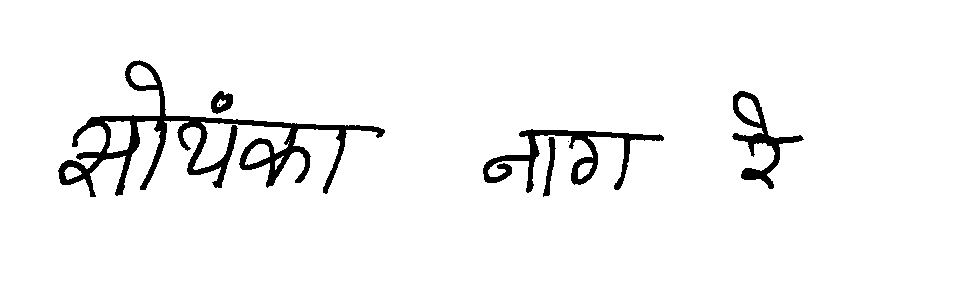 सोथंका नाग रे